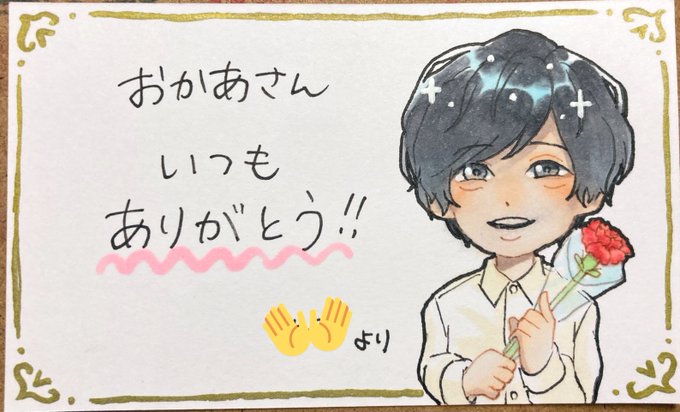 おかあさん
いつも
ありがとう!!
より